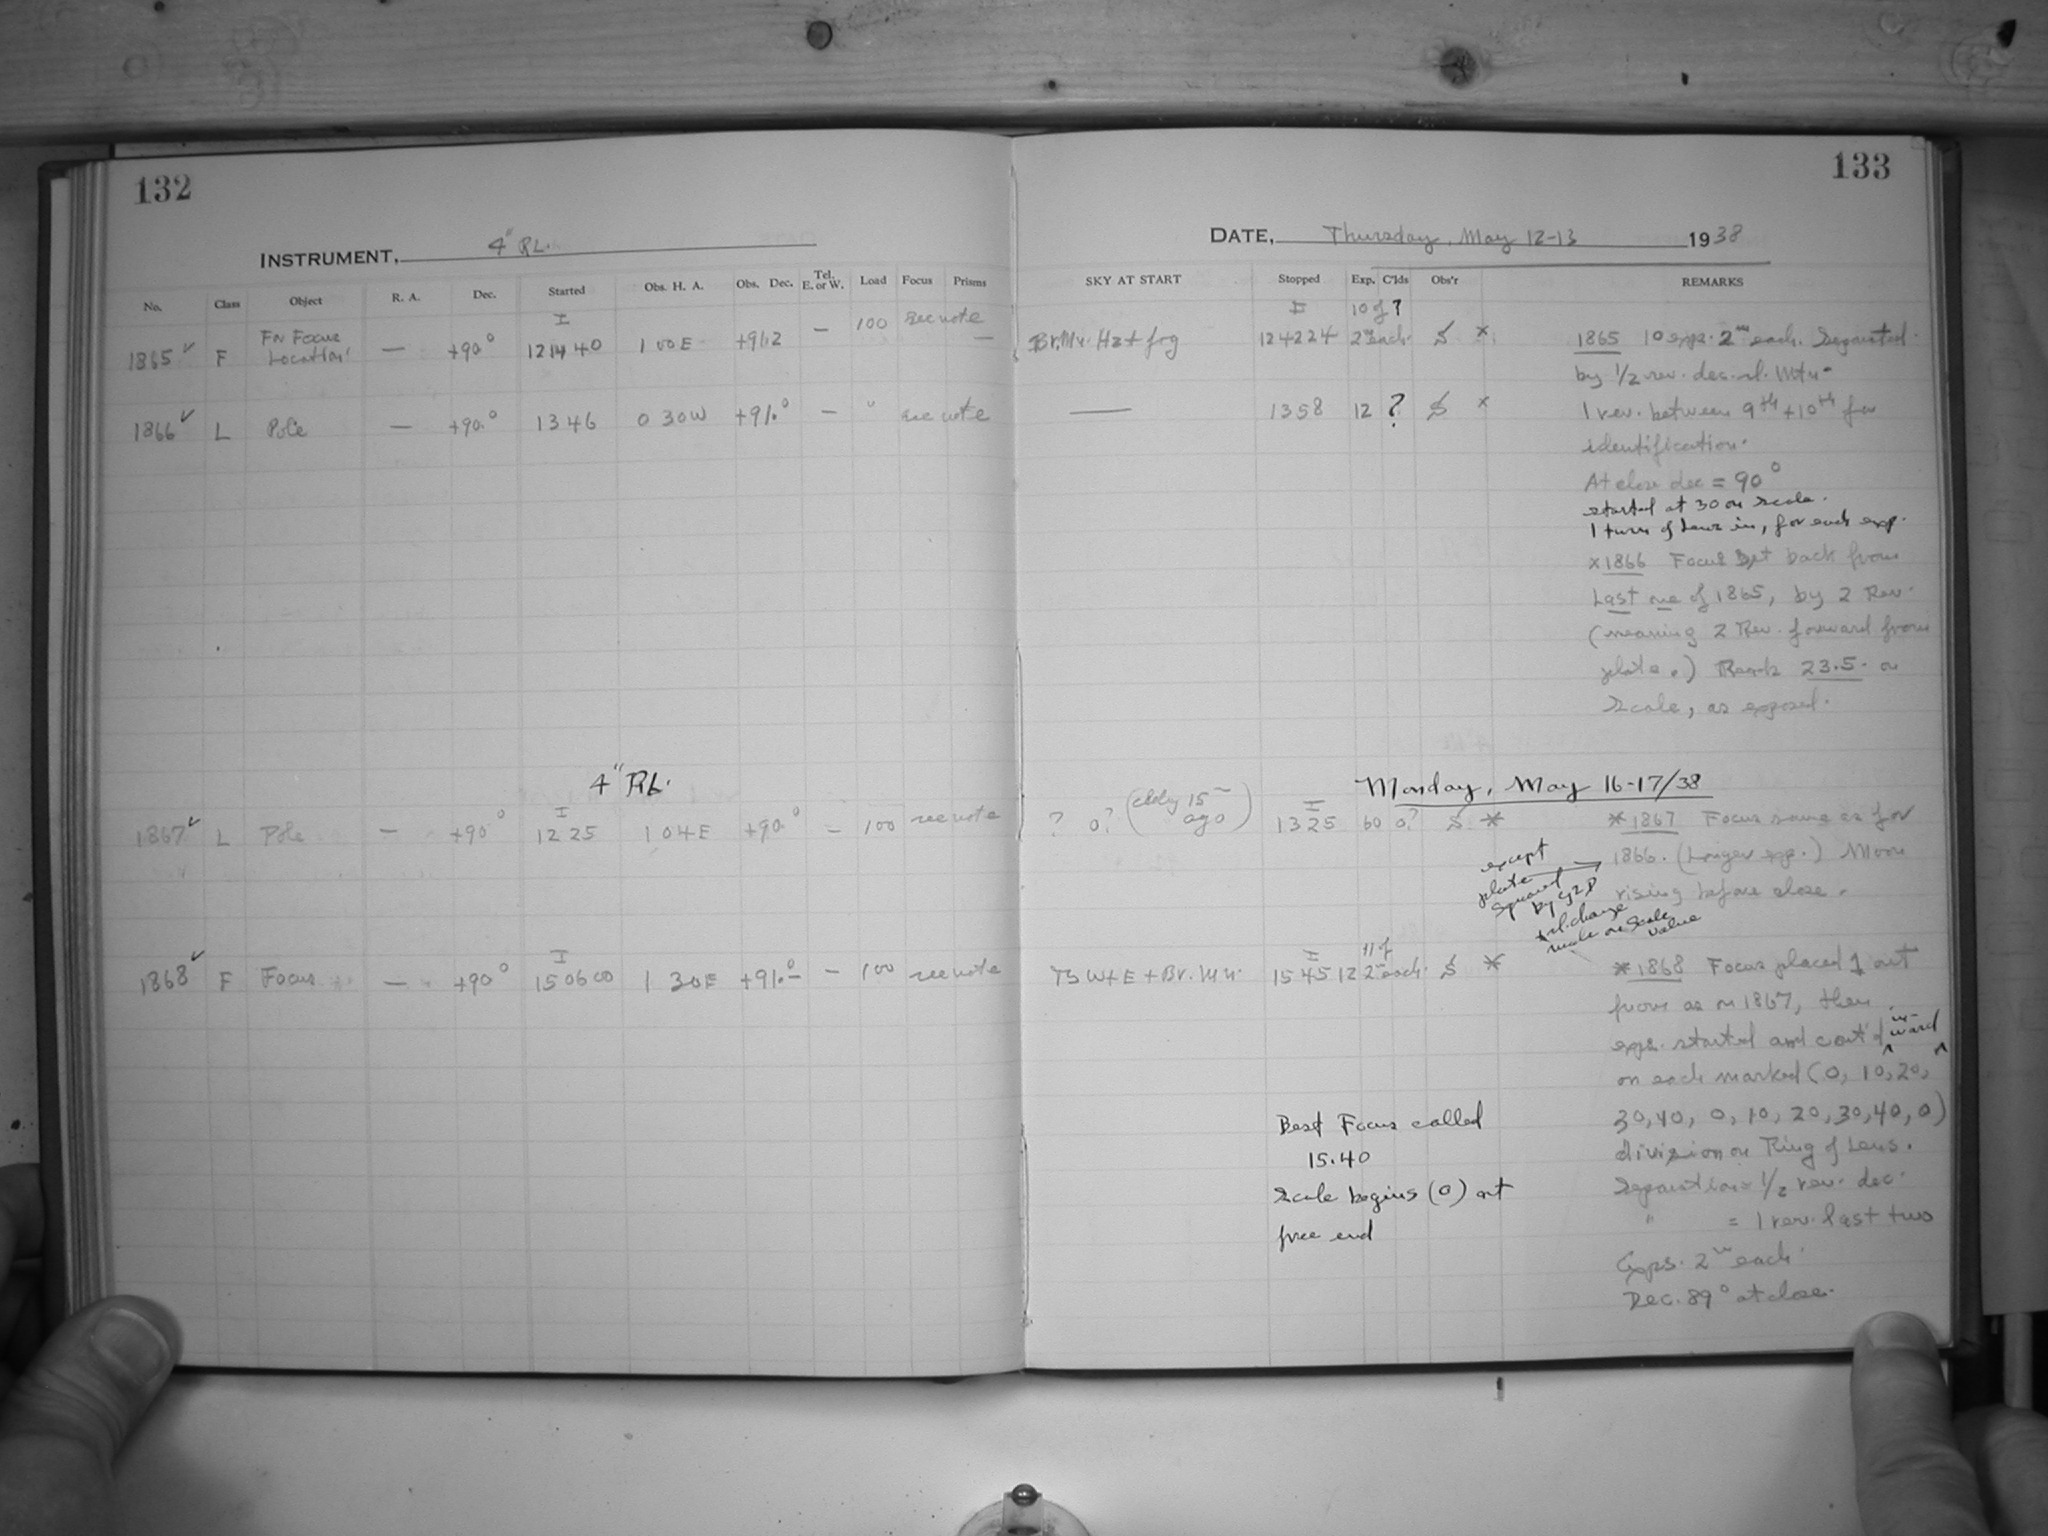 132
INSTRUMENT, 4" RL.
No. Class Object R. A. Dec. Started Obs. H. A. Obs. Dec. Tel. E. or W. Load Focus Prisms
1865 ✓ F For Focus Location — +90.° 12 14 40 1 00 E +91.2 — 100 see note —
1866 ✓ L Pole — +90.° 13 46 0 30 W +91.° — " see note
4" RL.
1867 ✓ L Pole — +90° 12 25 1 04 E +90.° — 100 see note
1868 ✓ F Focus — +90° 15 06 00 1 30 E +91.° — 100 see note
133
DATE, Thursday, May 12-13 1938
SKY AT START Stopped Exp. C'lds Obs'r REMARKS
Br. Mn. Hz + fog 12 42 24 10 of 2m each ? S × 1865 10 exps. 2m each. Separated
by 1/2 rev. dec. sl. Mtn.
— 13 58 12 ? S × 1 rev. between 9th + 10th for
identification.
At close dec = 90°
started at 30 on scale.
1 turn of Lens in, for each exp.
×1866 Focus set back from
Last one of 1865, by 2 Rev.
(meaning 2 Rev. forward from
plate.) Reads 23.5 on
Scale, as exposed.
Monday, May 16-17/38
? 0? (cldy 15m ago) 13 25 60 0? S * *1867 Focus same as for
1866. (Longer exp.) Moon
rising before close.
except
plate
squared
by
sl. change
made on scale
value
+ Br. Mn. 15 45 12 11 of 2m each S * *1868 Focus placed 1 out
from as on 1867, then
exps. started and cont'd in-ward
on each marked (0, 10, 20,
30, 40, 0, 10, 20, 30, 40, 0)
division on Ring of Lens.
Separation 1/2 rev. dec.
" = 1 rev. last two
Exps. 2m each.
Dec. 89° at close.
Best Focus called
15.40
Scale begins (0) at
free end